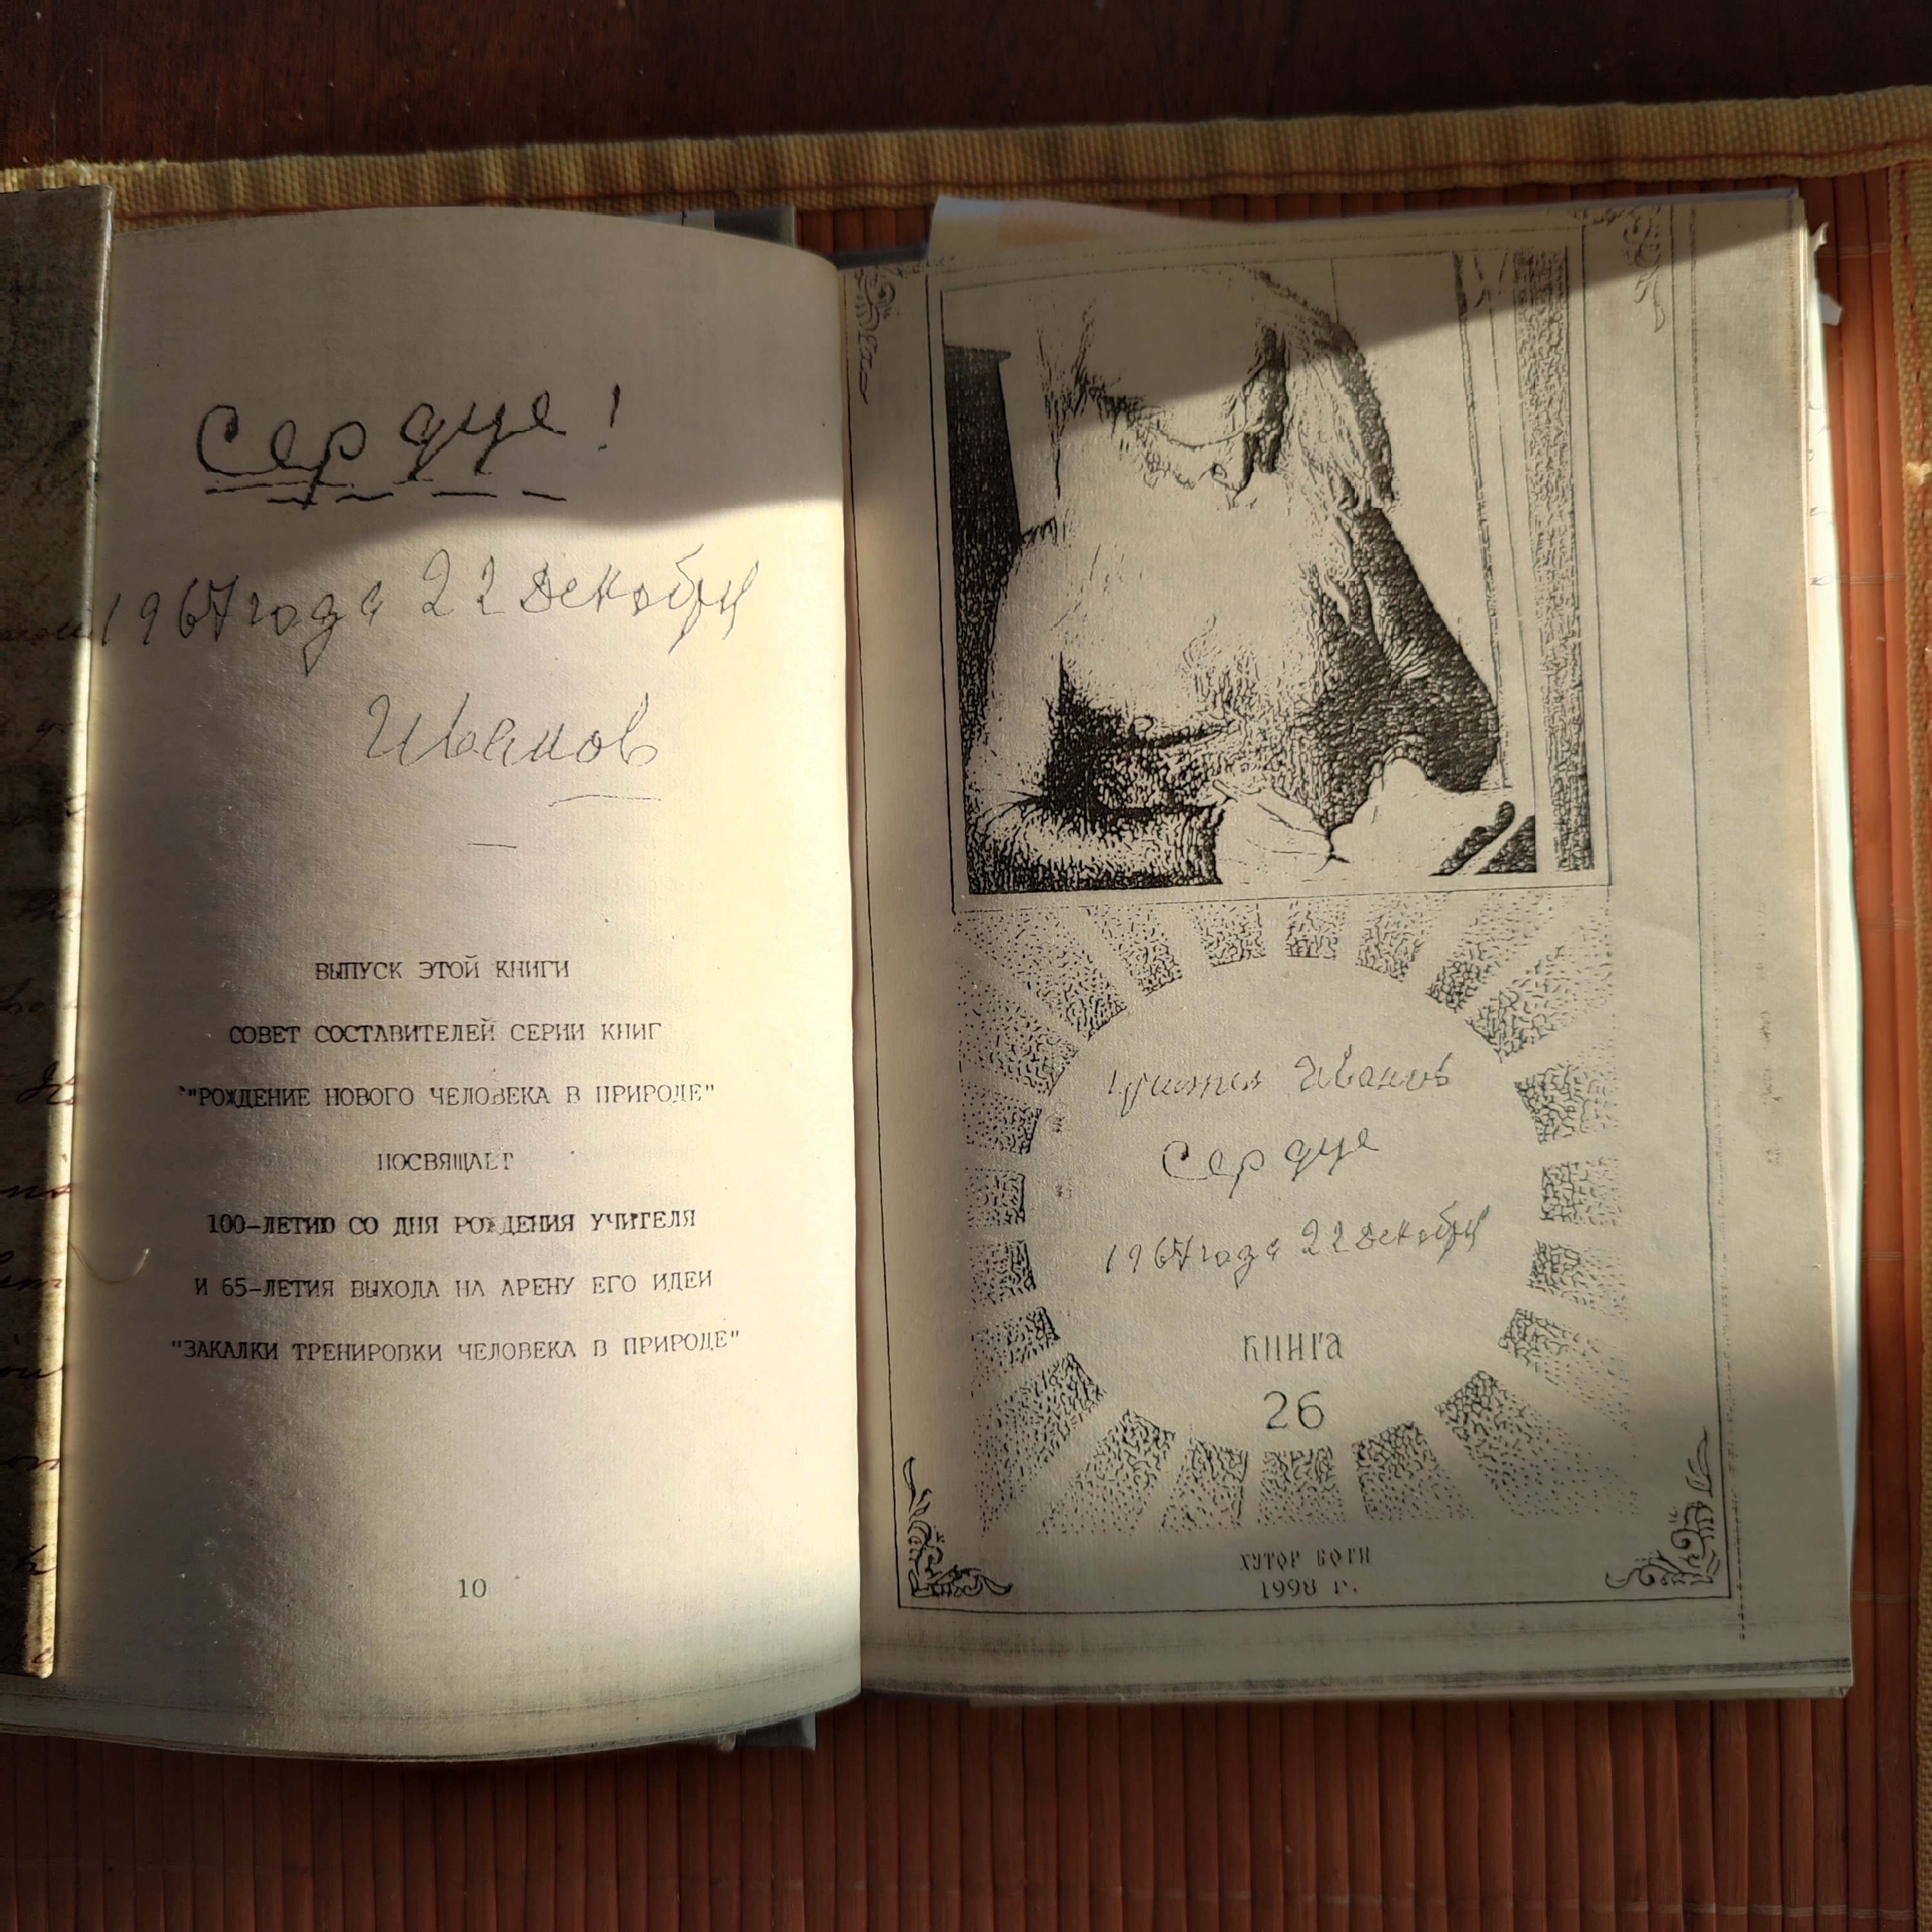 Сердце!
1967 года 22 декабря
Иванов
ВЫПУСК ЭТОЙ КНИГИ
СОВЕТ СОСТАВИТЕЛЕЙ СЕРИИ КНИГ
"РОЖДЕНИЕ НОВОГО ЧЕЛОВЕКА В ПРИРОДЕ"
ПОСВЯЩАЕТ
100-ЛЕТИЮ СО ДНЯ РОЖДЕНИЯ УЧИТЕЛЯ
И 65-ЛЕТИЯ ВЫХОДА НА АРЕНУ ЕГО ИДЕИ
"ЗАКАЛКИ ТРЕНИРОВКИ ЧЕЛОВЕКА В ПРИРОДЕ"
10
Иванов
Сердце
1967 года 22 декабря
КНИГА
26
ХУТОР БОГИ
1998 г.